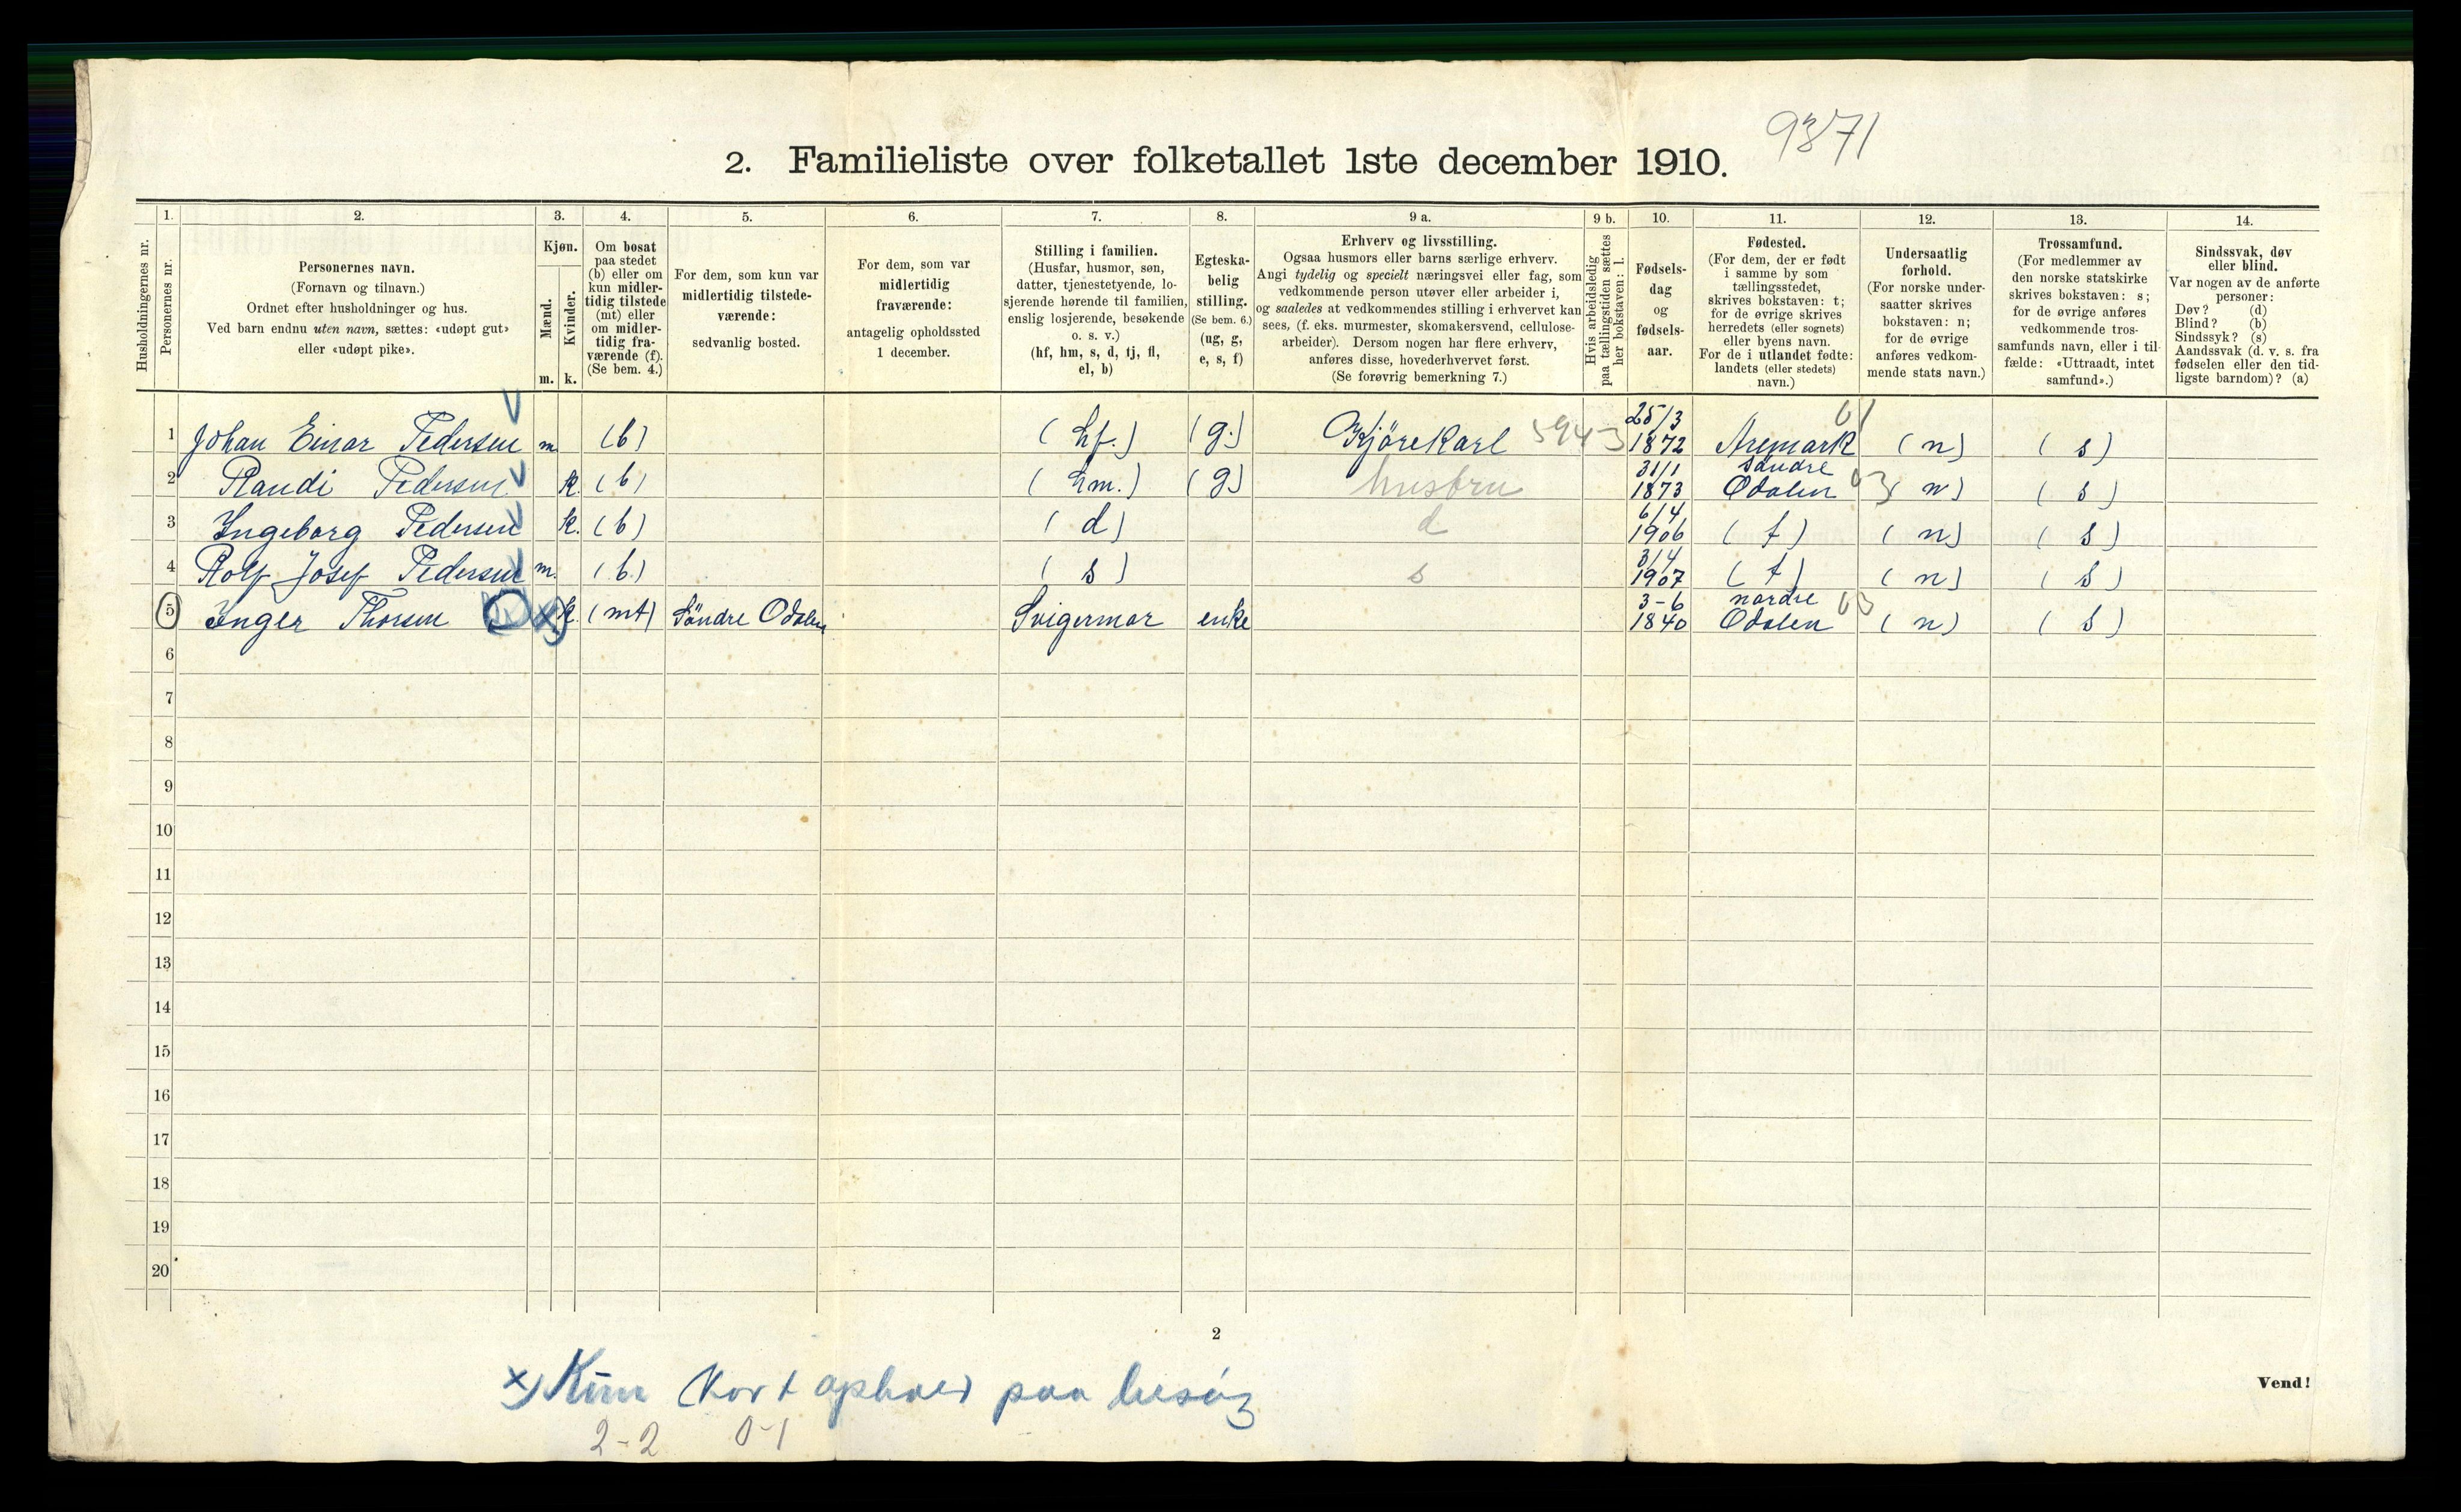 9371
2. Familieliste over folketallet 1ste december 1910.
1. 2. 3. 4. 5. 6. 7. 8. 9 a. 9 b. 10. 11. 12. 13. 14.
Husholdningernes nr.
Personernes nr.
Personernes navn.
(Fornavn og tilnavn.)
Ordnet efter husholdninger og hus.
Ved barn endnu uten navn, sættes: «udøpt gut»
eller «udøpt pike».
Kjøn.
Mænd.
Kvinder.
m. k.
Om bosat
paa stedet
(b) eller om
kun midler-
tidig tilstede
(mt) eller
om midler-
tidig fra-
værende (f).
(Se bem. 4.)
For dem, som kun var
midlertidig tilstede-
værende:
sedvanlig bosted.
For dem, som var
midlertidig
fraværende:
antagelig opholdssted
1 december.
Stilling i familien.
(Husfar, husmor, søn,
datter, tjenestetyende, lo-
sjerende hørende til familien,
enslig losjerende, besøkende
o. s. v.)
(hf, hm, s, d, tj, fl,
el, b)
Egteska-
belig
stilling.
(Se bem. 6.)
(ug, g,
e, s, f)
Erhverv og livsstilling.
Ogsaa husmors eller barns særlige erhverv.
Angi tydelig og specielt næringsvei eller fag, som
vedkommende person utøver eller arbeider i,
og saaledes at vedkommendes stilling i erhvervet kan
sees, (f. eks. murmester, skomakersvend, cellulose-
arbeider). Dersom nogen har flere erhverv,
anføres disse, hovederhvervet først.
(Se forøvrig bemerkning 7.)
Hvis arbeidsledig
paa tællingstiden sættes
her bokstaven: l.
Fødsels-
dag
og
fødsels-
aar.
Fødested.
(For dem, der er født
i samme by som
tællingsstedet,
skrives bokstaven: t;
for de øvrige skrives
herredets (eller sognets)
eller byens navn.
For de i utlandet fødte:
landets (eller stedets)
navn.)
Undersaatlig
forhold.
(For norske under-
saatter skrives
bokstaven: n;
for de øvrige
anføres vedkom-
mende stats navn.)
Trossamfund.
(For medlemmer av
den norske statskirke
skrives bokstaven: s;
for de øvrige anføres
vedkommende tros-
samfunds navn, eller i til-
fælde: «Uttraadt, intet
samfund».)
Sindssvak, døv
eller blind.
Var nogen av de anførte
personer:
Døv? (d)
Blind? (b)
Sindssyk? (s)
Aandssvak (d. v. s. fra
fødselen eller den tid-
ligste barndom)? (a)
1 Johan Einar Pedersen m. (b) (hf.) (g.) Kjørekarl 5943 25/3 1872 Aremark 01 (n) (s)
2 Randi Pedersen k. (b) (hm.) (g) husfru 31/1 1873 Søndre Odalen 03 (n) (s)
3 Ingeborg Pedersen k. (b) (d) d 6/4 1906 (t) (n) (s)
4 Rolf Josef Pedersen m. (b) (s) s 3/4 1907 (t) (n) (s)
5 Inger Thorsen x) k. (mt) Söndre Odalen Svigermor enke 3-6 1840 nordre Odalen 03 (n) (s)
6
7
8
9
10
11
12
13
14
15
16
17
18
19
20
2
x) Kun kort ophold paa besøg
Vend!
2-2 0-1